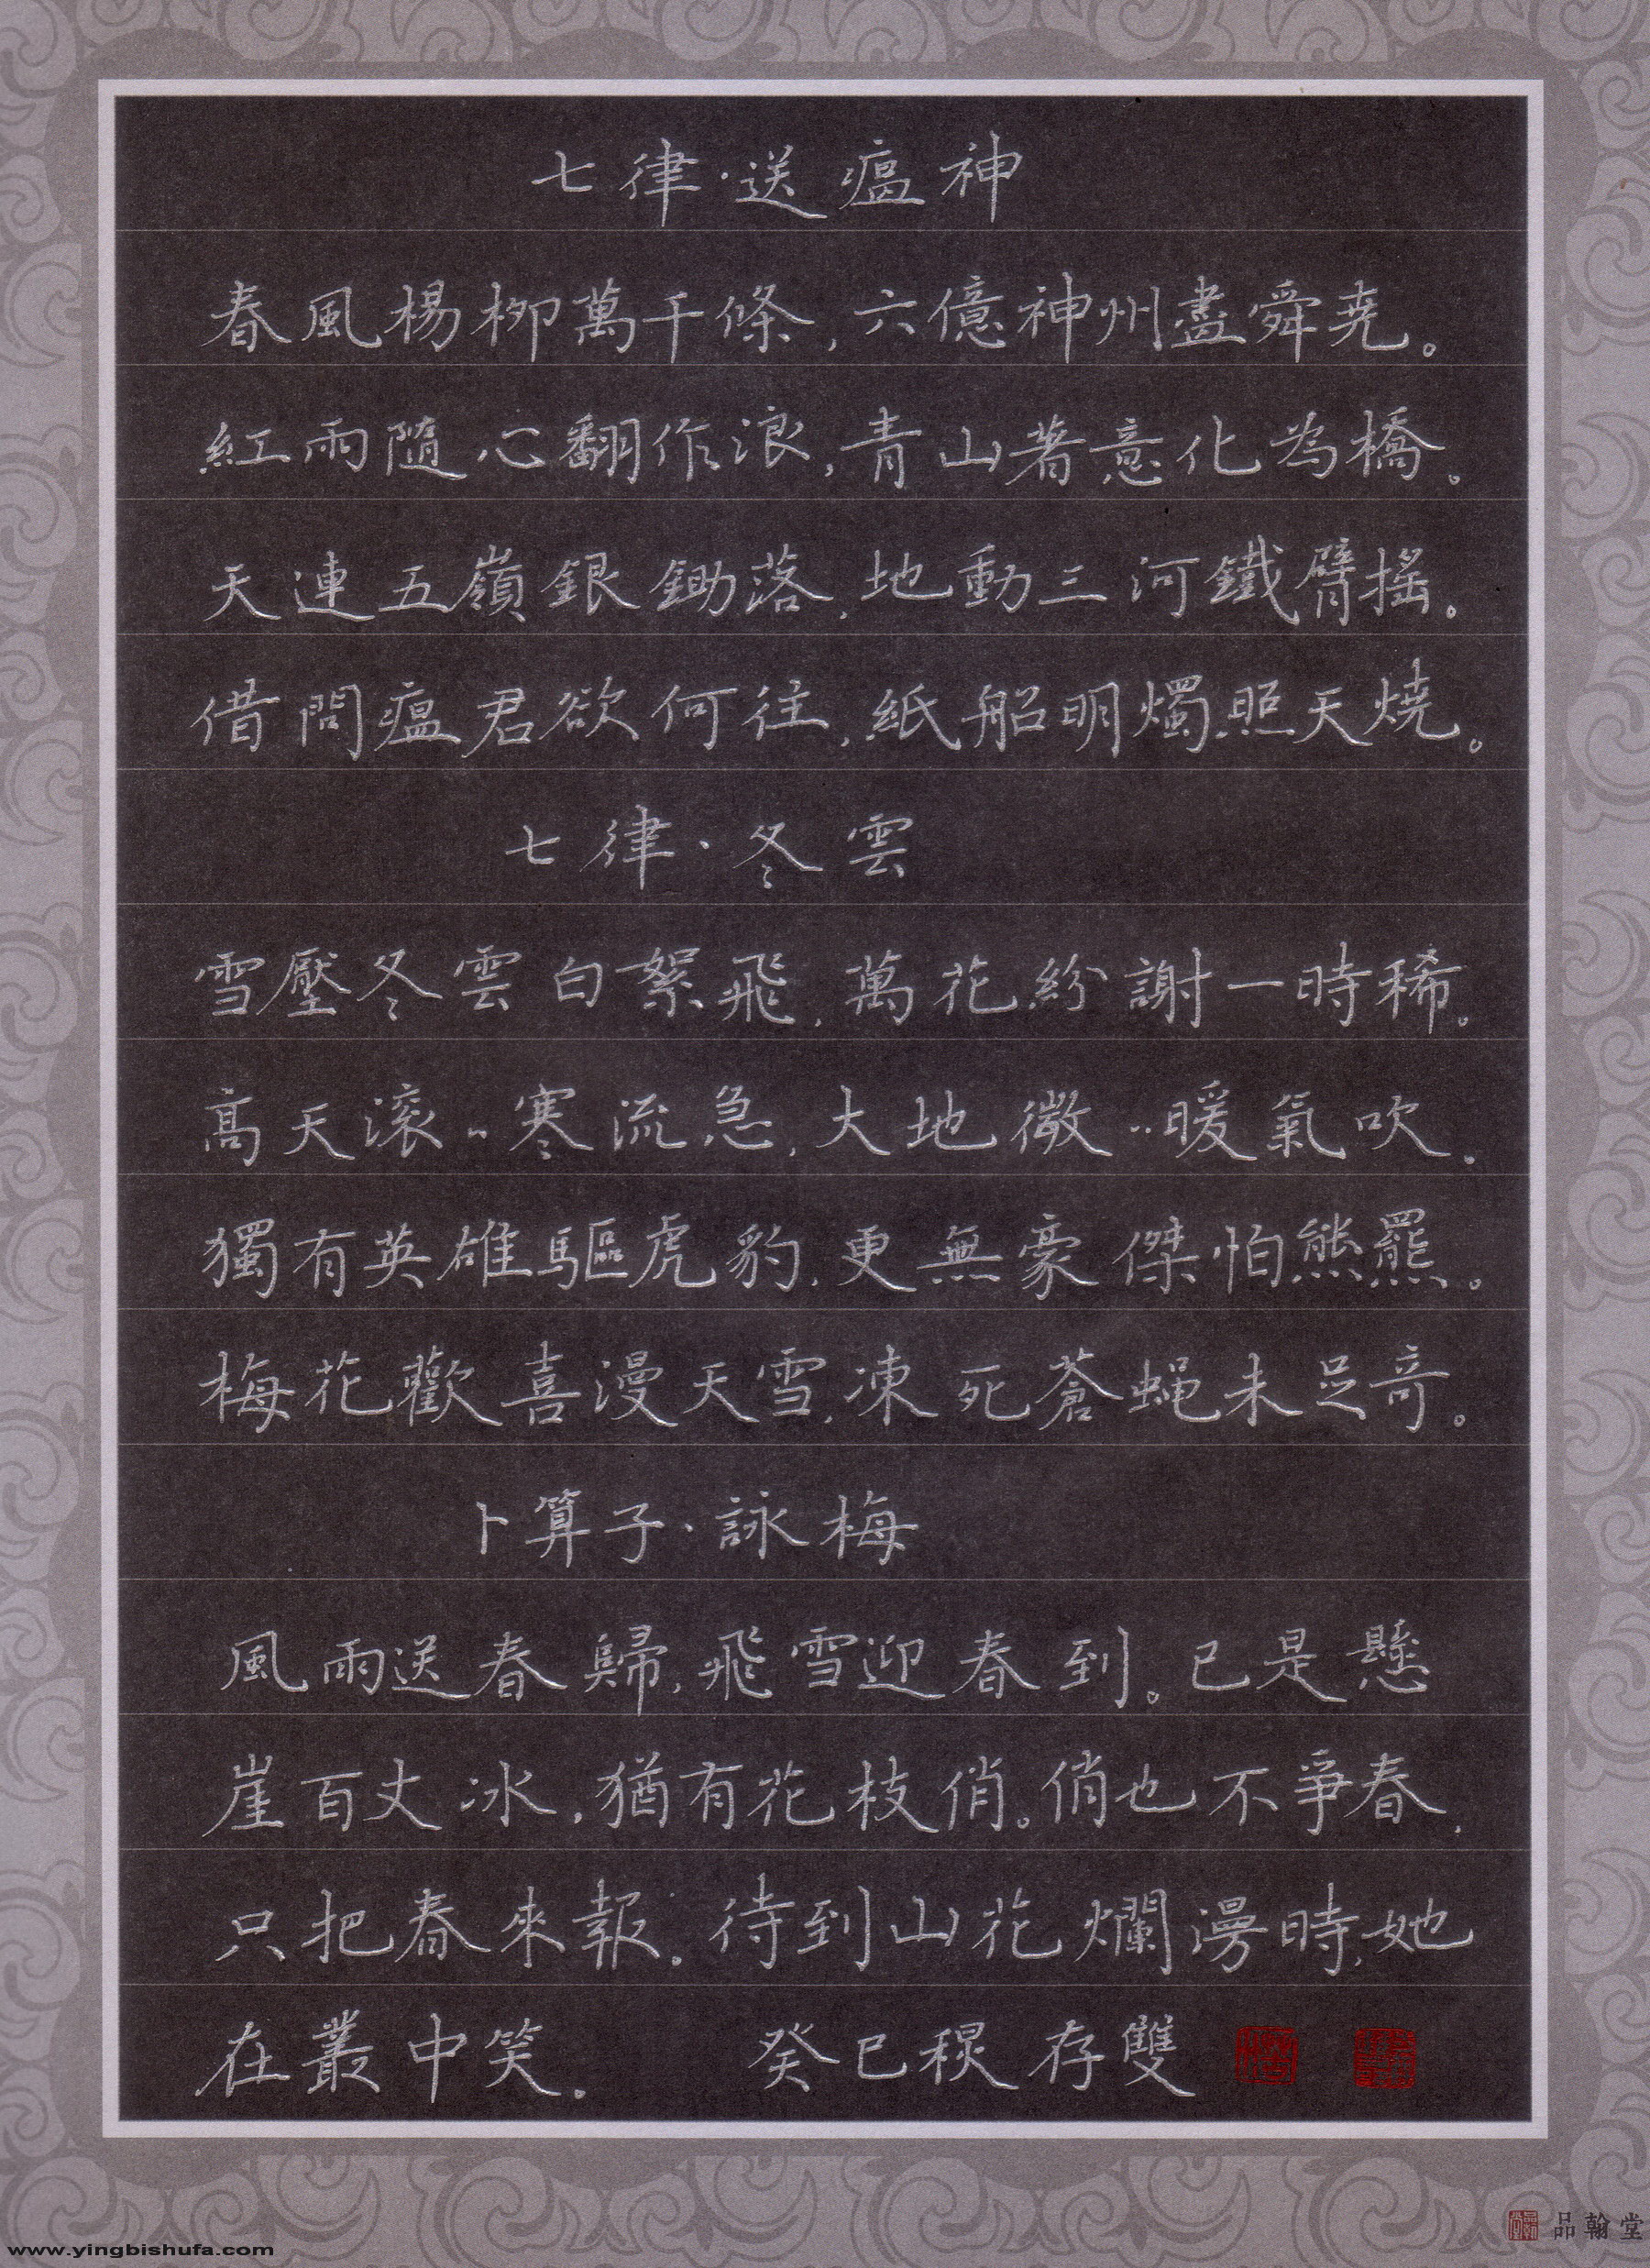 七律·送瘟神
春風楊柳萬千條，六億神州盡舜尧。
紅雨隨心翻作浪，青山著意化為橋。
天連五嶺銀鋤落，地動三河鐵臂搖。
借問瘟君欲何往，紙船明燭照天燒。
七律·冬雲
雪壓冬雲白絮飛，萬花紛謝一時稀。
高天滾〃寒流急，大地微〃暖氣吹。
獨有英雄驅虎豹，更無豪傑怕熊羆。
梅花歡喜漫天雪，凍死蒼蝇未足奇。
卜算子·詠梅
風雨送春歸，飛雪迎春到。已是懸
崖百丈冰，猶有花枝俏。俏也不爭春，
只把春來報。待到山花爛漫時，她
在叢中笑。 癸巳 存雙
品翰堂
www.yingbishufa.com